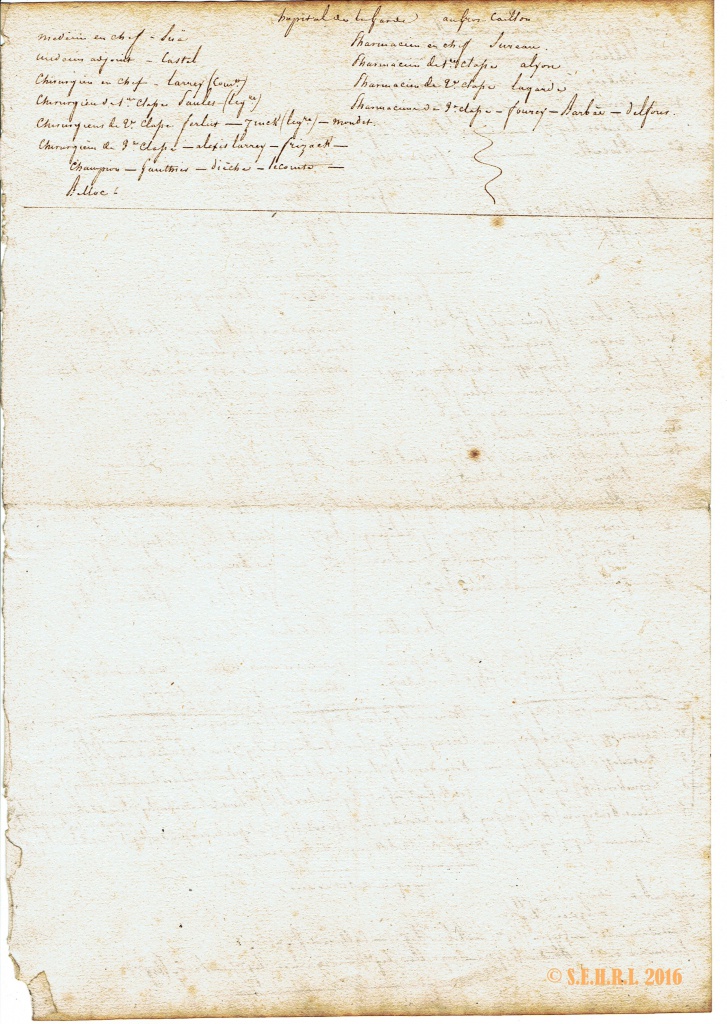 hôpital de la Garde au gros Caillou
médecin en chef - Süe
médecin adjoint - Castel
Chirurgien en chef - Larrey
Chirurgien de 1re classe Paulet
Chirurgiens de 2e classe ferlus - Zinck - mondet.
Chirurgiens de 3e classe - alexis Larrey - frizack -
Champion - Gauthier - dièche - lecomte -
Belloc
Pharmacien en chef Sureau.
Pharmacien de 1re classe alyon.
Pharmacien de 2e classe lagarde
Pharmaciens de 3e classe - fourcy - Barbès - delfous.
© S.E.H.R.I. 2016